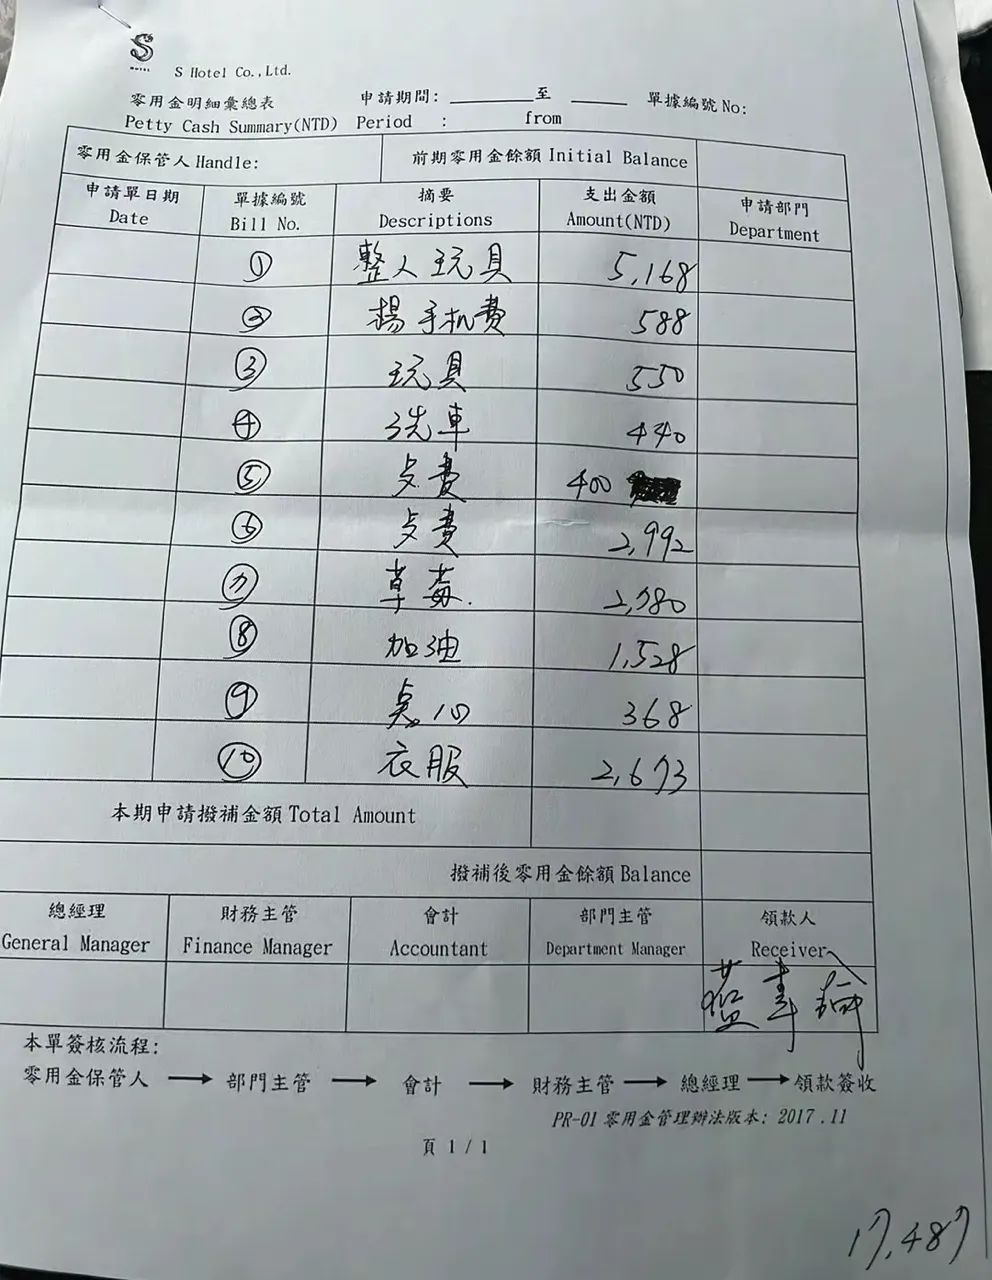 S
HOTEL
S Hotel Co.,Ltd.
零用金明細彙總表 申請期間: ________至 ______ 單據編號 No:
Petty Cash Summary(NTD) Period : from
零用金保管人 Handle: 前期零用金餘額 Initial Balance
申請單日期 單據編號 摘要 支出金額 申請部門
Date Bill No. Descriptions Amount(NTD) Department
① 整人玩具 5,168
② 楊手机費 588
③ 玩具 550
④ 洗車 440
⑤ 歺費 400
⑥ 歺費 2,992
⑦ 草莓. 2,780
⑧ 加油 1,528
⑨ 奌心 368
⑩ 衣服 2,673
本期申請撥補金額 Total Amount
撥補後零用金餘額 Balance
總經理 財務主管 會計 部門主管 領款人
General Manager Finance Manager Accountant Department Manager Receiver
本單簽核流程:
零用金保管人 → 部門主管 → 會計 → 財務主管 → 總經理 → 領款簽收
PR-01 零用金管理辦法版本: 2017.11
頁 1 / 1
17,487